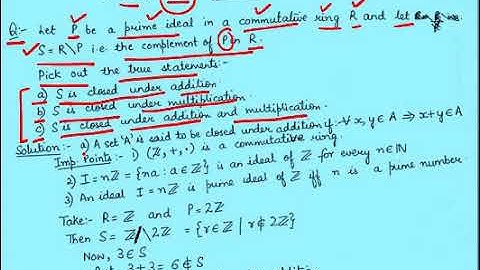 Q:- Let P be a prime ideal in a commutative ring R and let
S = R\P i.e. the complement of P in R.
Pick out the true statements:-
a) S is closed under addition.
b) S is closed under multiplication.
c) S is closed under addition and multiplication.
Solution:- a) A set 'A' is said to be closed under addition if:- ∀ x, y ∈ A ⇒ x+y ∈ A
Imp. Points:- 1) (ℤ, +, ·) is a commutative ring.
2) I = nℤ = {na : a ∈ ℤ} is an ideal of ℤ for every n ∈ ℕ
3) An ideal I = nℤ is prime ideal of ℤ iff n is a prime number.
Take:- R = ℤ and P = 2ℤ
Then S = ℤ\2ℤ = {r ∈ ℤ | r ∉ 2ℤ}
Now, 3 ∈ S
3+3 = 6 ∉ S